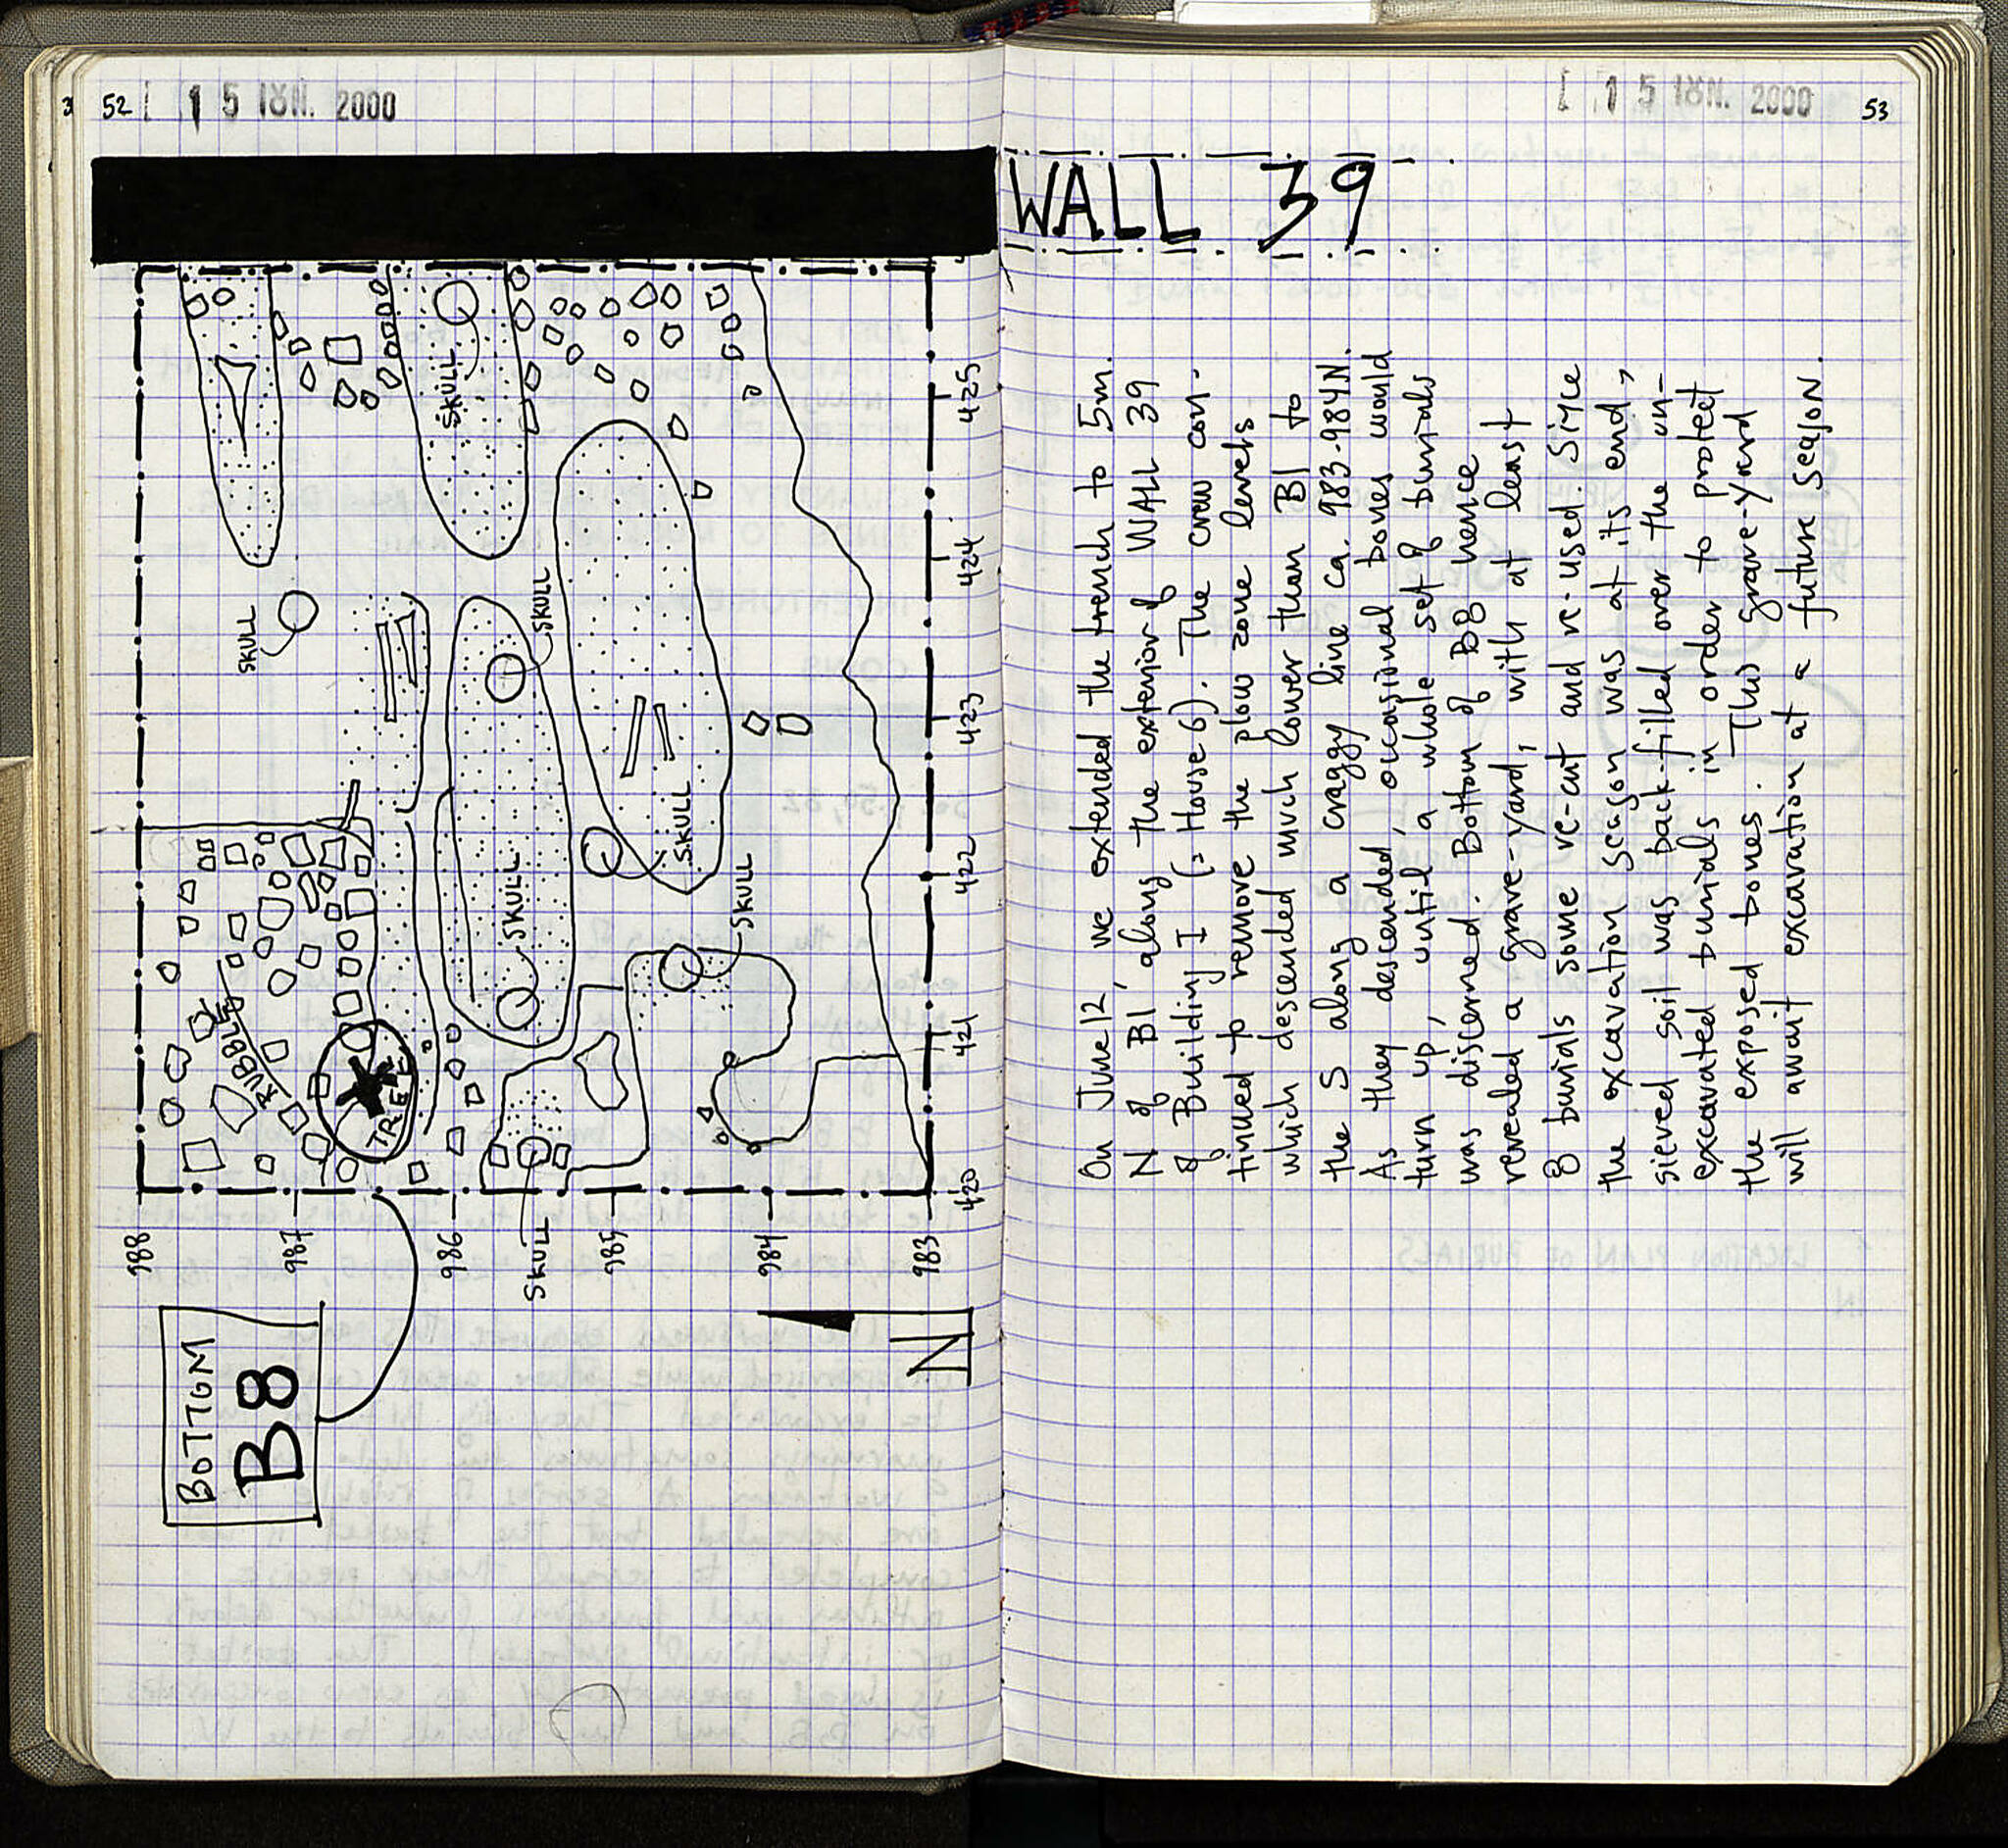 52
15 ΙΟΥΝ. 2000
15 ΙΟΥΝ. 2000
53
WALL 39
SKULL
SKULL
SKULL
SKULL
SKULL
SKULL
SKULL
RUBBLE
TREE
425
424
423
422
421
420
988
987
986
985
984
983
BOTTOM
B8
N
On June 12, we extended the trench to 5m.
N of B1 along the exterior of WALL 39
of Building I (= House 6). The crew con-
tinued to remove the plow zone levels
which descended much lower than B1 to
the S along a craggy line ca. 983-984N.
As they descended, occasional bones would
turn up, until a whole set of burials
was discerned. Bottom of B8 hence
revealed a grave-yard, with at least
8 burials some re-cut and re-used. Since
the excavation season was at its end,
sieved soil was back-filled over the un-
excavated burials in order to protect
the exposed bones. This grave-yard
will await excavation at a future season.